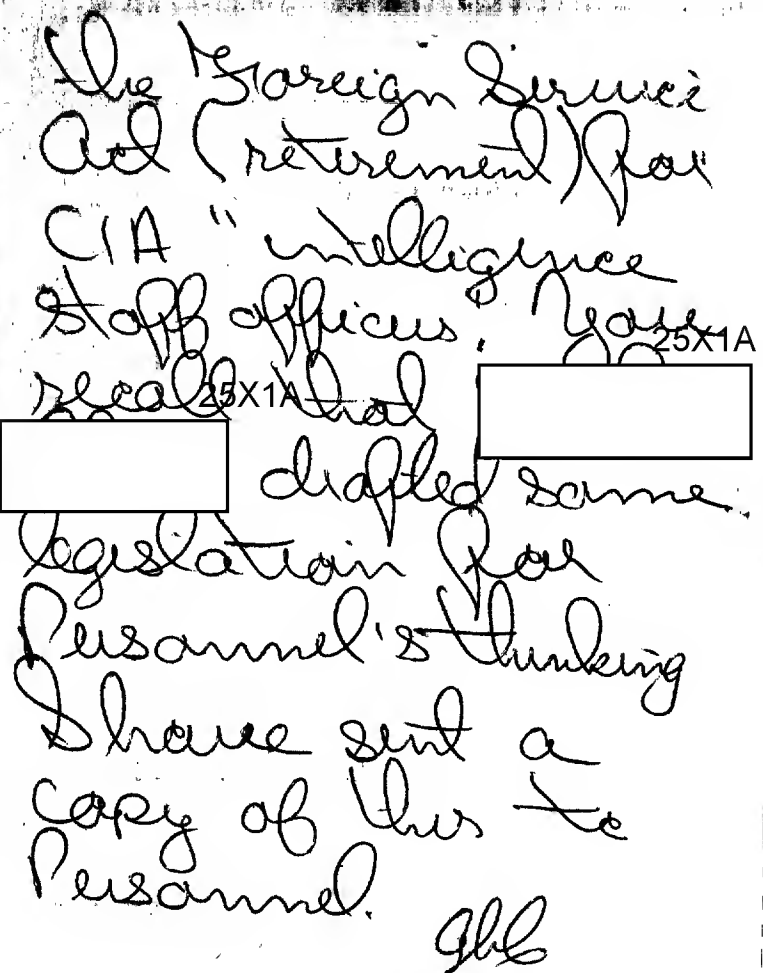 the "Foreign Service
Act (retirement) for
CIA "intelligence
staff officers. You
25X1A
recall that
25X1A
drafted some
legislation for
Personnel's thinking
I have sent a
copy of this to
Personnel.